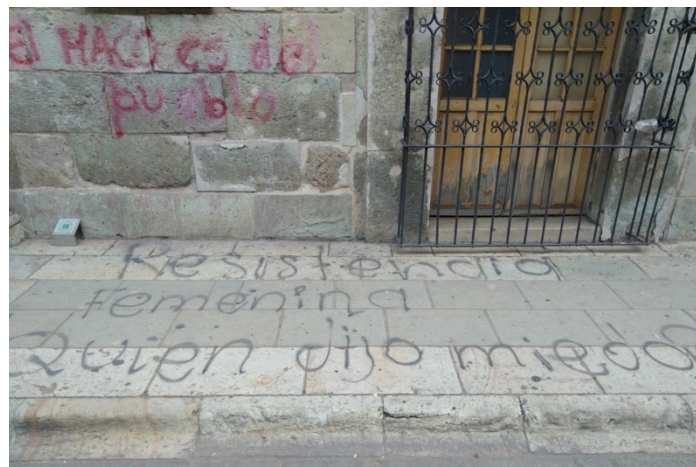 El MACO es del
pueblo
Resistencia
Femenina
Quien dijo miedo